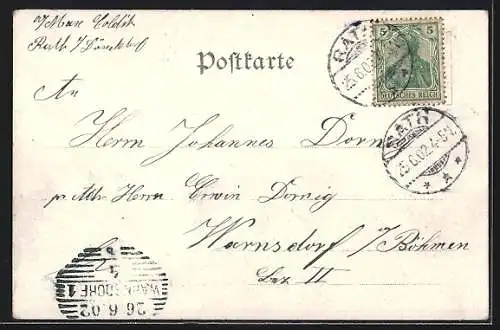 Rath
Postkarte
5 5
DEUTSCHES REICH
RATH
25.6.02
An
Herrn Johannes Dorn
RATH
25.6.02.4-5N.
pr Adr Herrn Erwin Domig
Warnsdorf i/Böhmen
Bez II
WARNSDORF 1
26.6.02